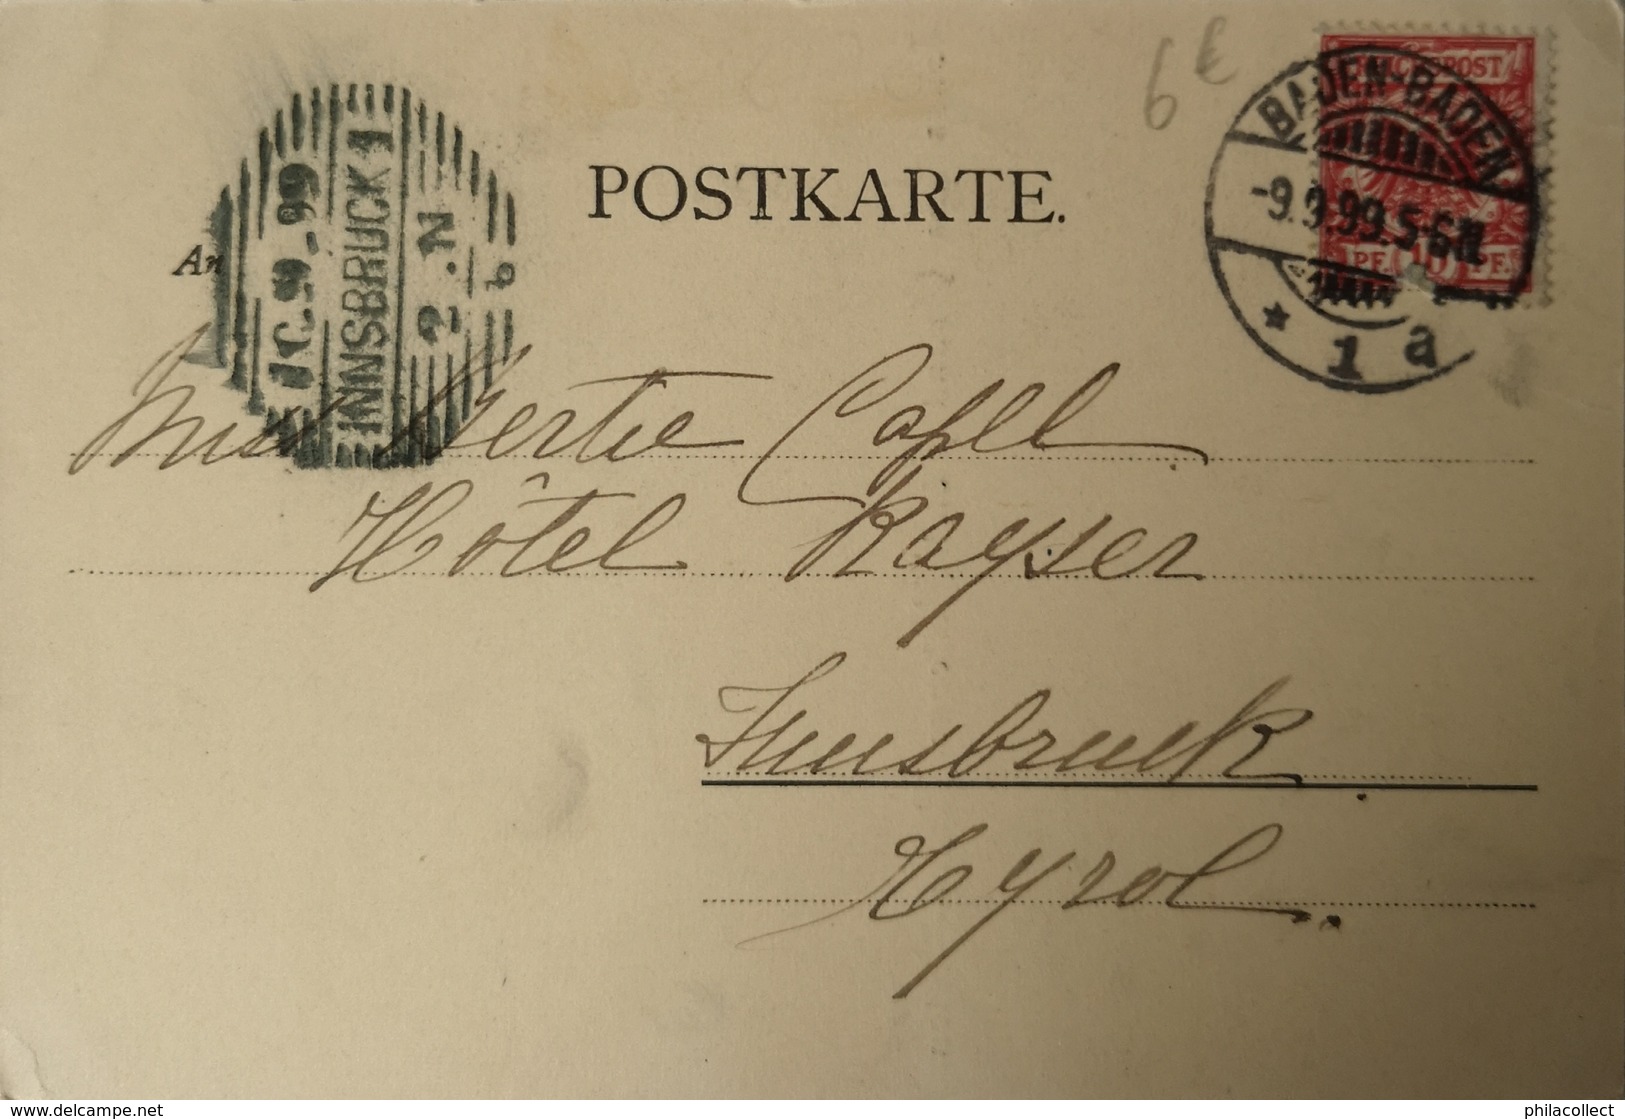 6 €
REICHSPOST
BADEN-BADEN
-9.9.99.5-6N.
PF. 10 PF.
* 1 a
POSTKARTE.
An
10.9.99
INNSBRUCK 1
2.N
b
Miss Gertie Capel
Hôtel Kayser
Innsbruck
Tyrol
www.delcampe.net
philacollect